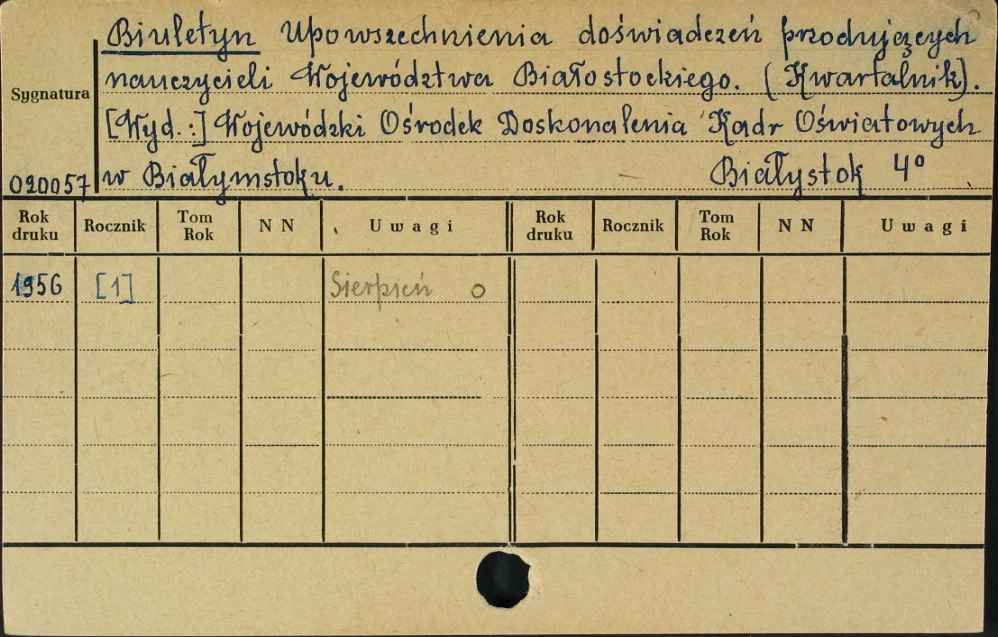 Biuletyn Upowszechnienia doświadczeń przodujących
nauczycieli Województwa Białostockiego. (Kwartalnik).
Sygnatura
[Wyd.:] Wojewódzki Ośrodek Doskonalenia Kadr Oświatowych
020057 w Białymstoku. Białystok 4°
Rok druku Rocznik Tom Rok NN Uwagi Rok druku Rocznik Tom Rok NN Uwagi
1956 [1] Sierpień o